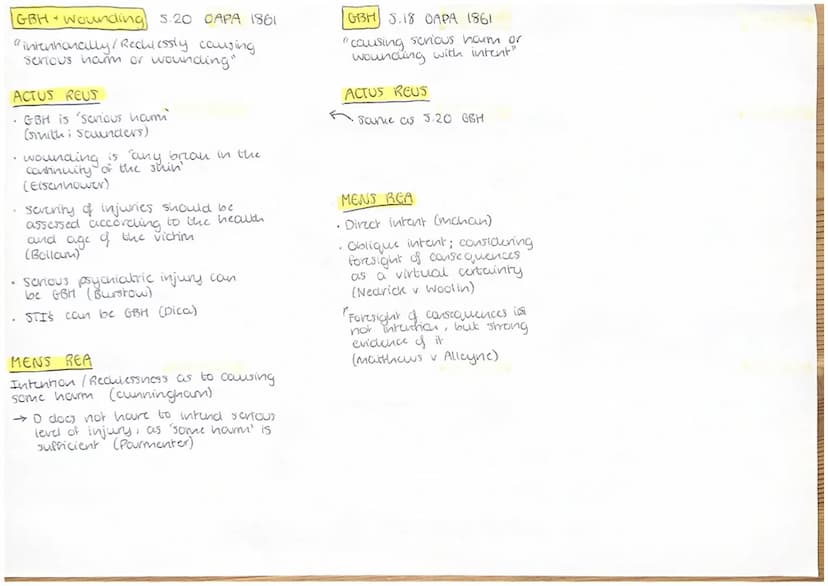 GBH + wounding S.20 OAPA 1861
"intentionally/Recklessly causing
serious harm or wounding"
ACTUS REUS
· GBH is 'serious harm'
(Smith; Saunders)
· wounding is 'any break in the
continuity of the skin'
(Eisenhower)
· Severity of injuries should be
assessed according to the health
and age of the victim
(Bollam)
· Serious psychiatric injury can
be GBH (Burstow)
· STI's can be GBH (Dica)
MENS REA
Intention / Recklessness as to causing
some harm (Cunningham)
→ D does not have to intend serious
level of injury, as 'some harm' is
sufficient (Parmenter)
GBH S.18 OAPA 1861
"causing serious harm or
wounding with intent"
ACTUS REUS
same as S.20 GBH
MENS REA
· Direct intent (Mohan)
· Oblique intent; considering
foresight of consequences
as a virtual certainty
(Nedrick v Woolin)
"Foresight of consequences is
not intention, but strong
evidence of it
(Matthews v Alleyne)